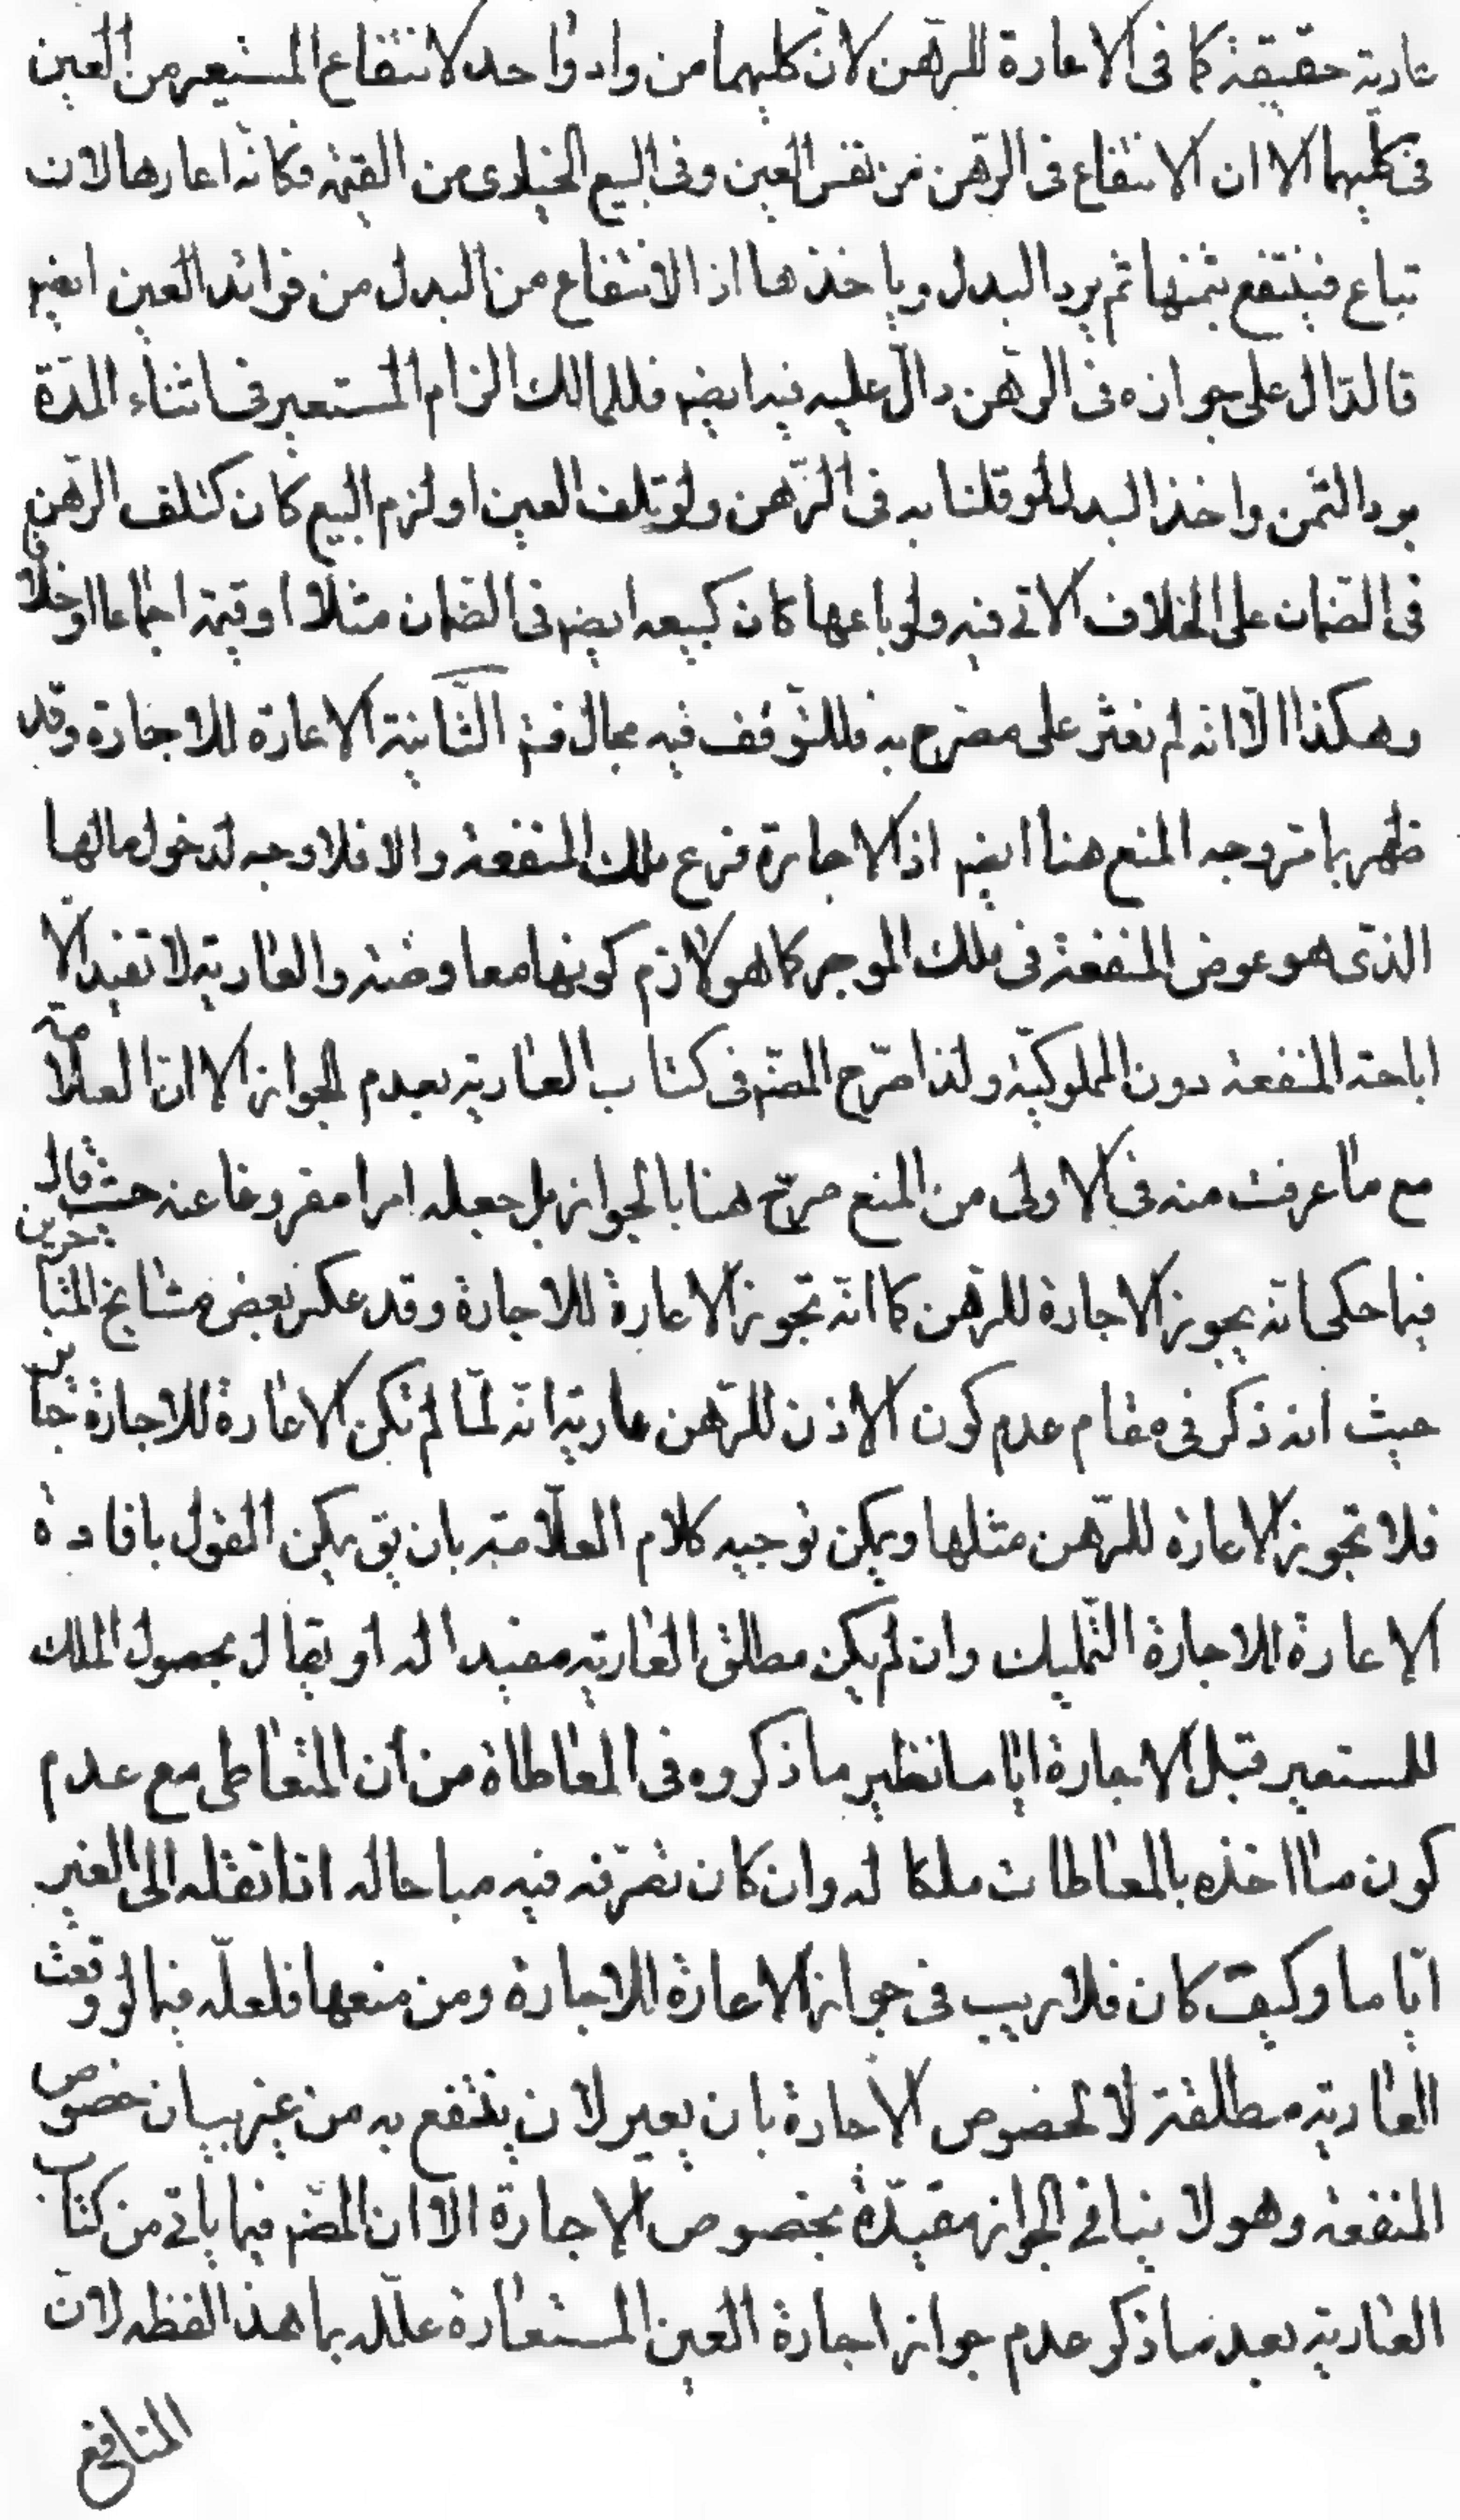 عارية حقيقة كما فى الاعارة للرّهن لانّ كليهما من واد واحد لانتفاع المستعير من العين
فى كليهما الا ان الانتفاع فى الرّهن من نفس العين وفى البيع الخيارى من القيمة فكانّه اعارها لان
تباع فينتفع بثمنها ثم يرد البدل وياخذها اذ الانتفاع من البدل من فوائد العين ايضم
فالدّال على جوازه فى الرهن دالّ عليه فيه ايضم فللمالك الزام المستعير فى اثناء المدّة
برد الثمن واخذ البدل لو قلنا به فى الرّهن ولو تلف العين او لزم البيع كان كتلف الرّهن
فى الضمان على الخلاف الاتى فيه ولو باعها كان كبيعه ايضم فى الضمان مثلا او قيمة اجماعا او خلافا
وهكذا الّا انه لم نعثر على مصرح به فللتوقف فيه مجال فتم الثّانية الاعارة للاجارة وقد
ظهر بما مرّ وجه المنع هنا ايضم اذ الاجارة فرع ملك المنفعة والا فلا وجه لدخول مالها
الذّى هو عوض المنفعة فى ملك الموجر كما هو لازم كونها معاوضة والعارية لا تفيد الّا
اباحة المنفعة دون المملوكيّة ولذا صرّح المصّم فى كتاب العارية بعدم الجواز الا انّ العلّامة
مع ما عرفت منه فى الاولى من المنع صرّح هنا بالجواز بل جعله امرا مفروغا عنه حيث قال
فيما حكى انّه يجوز الاجارة للرّهن كما انّه تجوز الاعارة للاجارة وقد عكس بعض مشايخ المتاخرين
حيث انه ذكر فى مقام عدم كون الاذن للرّهن عارية انّه لمّا لم تكن الاعارة للاجارة جايز
فلا تجوز الاعارة للرّهن مثلها ويمكن توجيه كلام العلّامة بان يق يمكن القول بافادة
الاعارة للاجارة التّمليك وان لم يكن مطلق العارية مفيدا له او يقال بحصول الملك
للمستعير قبل الاجارة انا ما نظير ما ذكروه فى المعاطاة من انّ المتعاطى مع عدم
كون ما اخذه بالمعاطات ملكا له وان كان تصرّفه فيه مباحا له اذا نقله الى الغير
انّا ما وكيف كان فلا ريب فى جواز الاعارة للاجارة ومن منعها فلعلّه فيما لو وقعت
العارية مطلقة لا لخصوص الاجارة بان يعير لان ينتفع به من غير بيان خصوص
المنفعة وهو لا ينافى الجواز مقيدّة بخصوص الاجارة الّا ان المصّم فيما ياتى من كتاب
العارية بعد ما ذكر عدم جواز اجارة العين المستعارة علّله بما هذا لفظه لان
المنافع